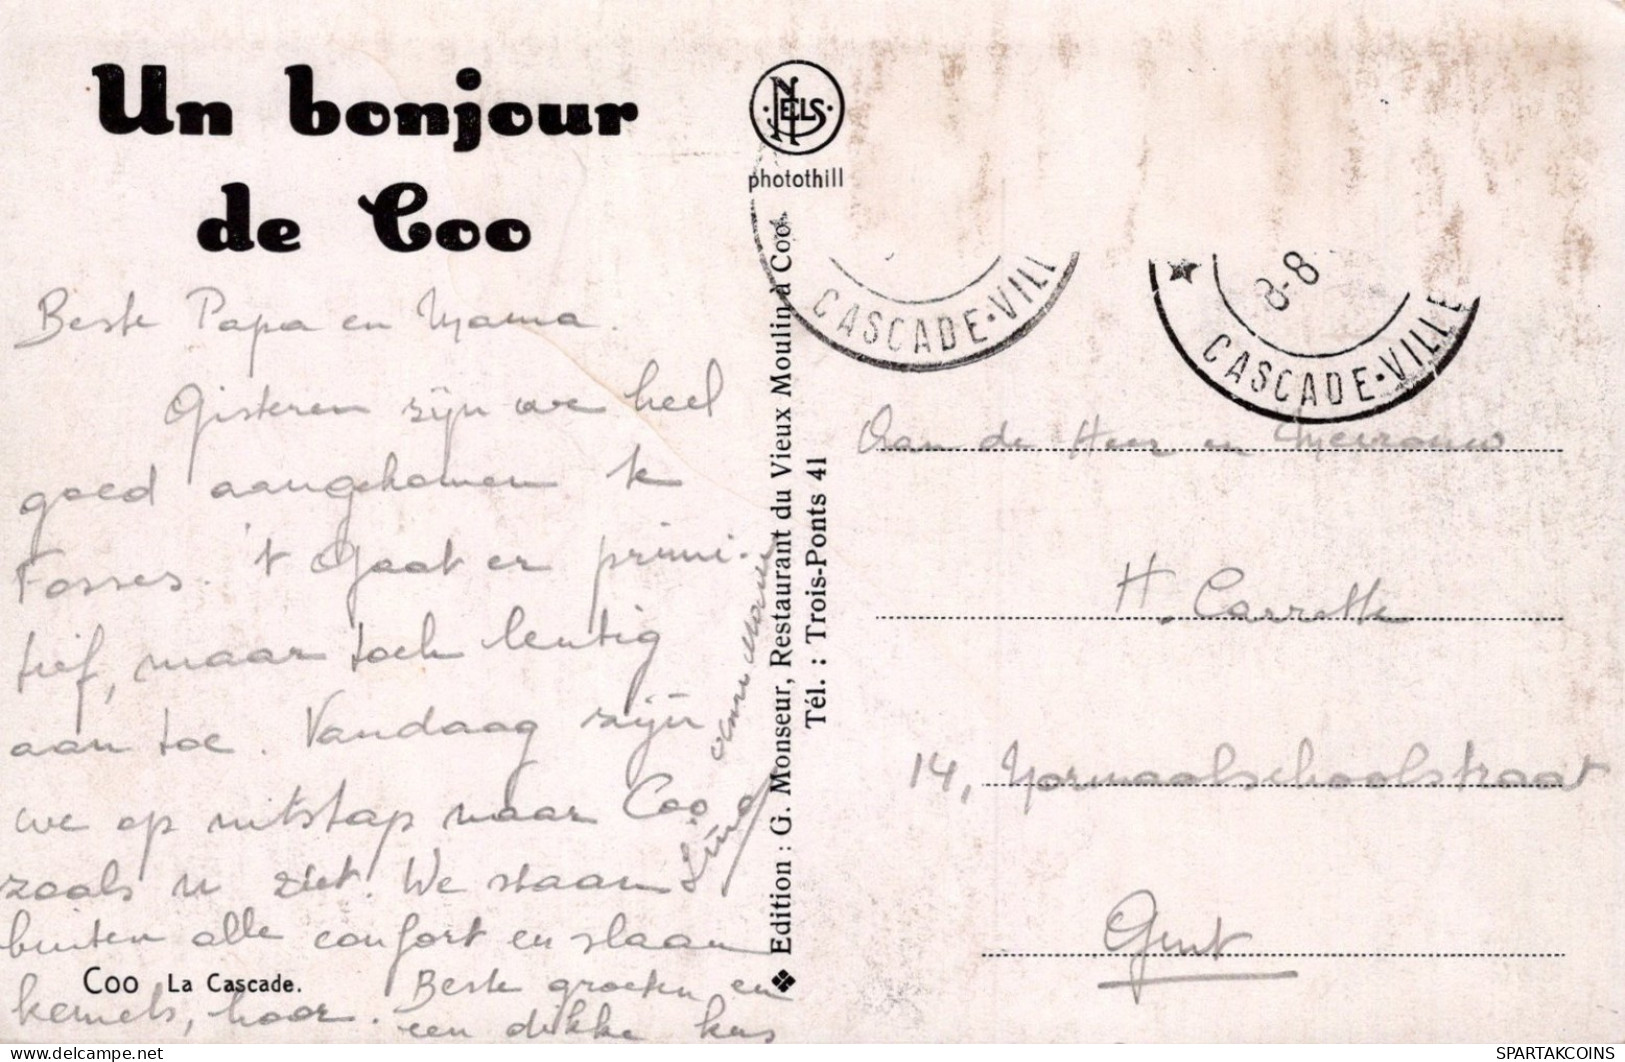 Un bonjour
de Coo
Beste Papa en Mama.
Gisteren zijn we heel
goed aangekomen te
Fosses. 't Gaat er primi-
tief, maar toch leutig
aan toe. Vandaag zijn
we op uitstap naar Coo
zoals u ziet. We staan
buiten alle confort en slaan
kemels, hoor. Beste groeten en
een dikke kus
Coo La Cascade.
NELS
photothill
❖ Edition : G. Monseur, Restaurant du Vieux Moulin à Coo.
Tél. : Trois-Ponts 41
CASCADE-VILL
8-8
CASCADE-VILLE
Aan de Heer en Mevrouw
H. Carrette
14, Normaalschoolstraat
Gent
SPARTAKCOINS
www.delcampe.net